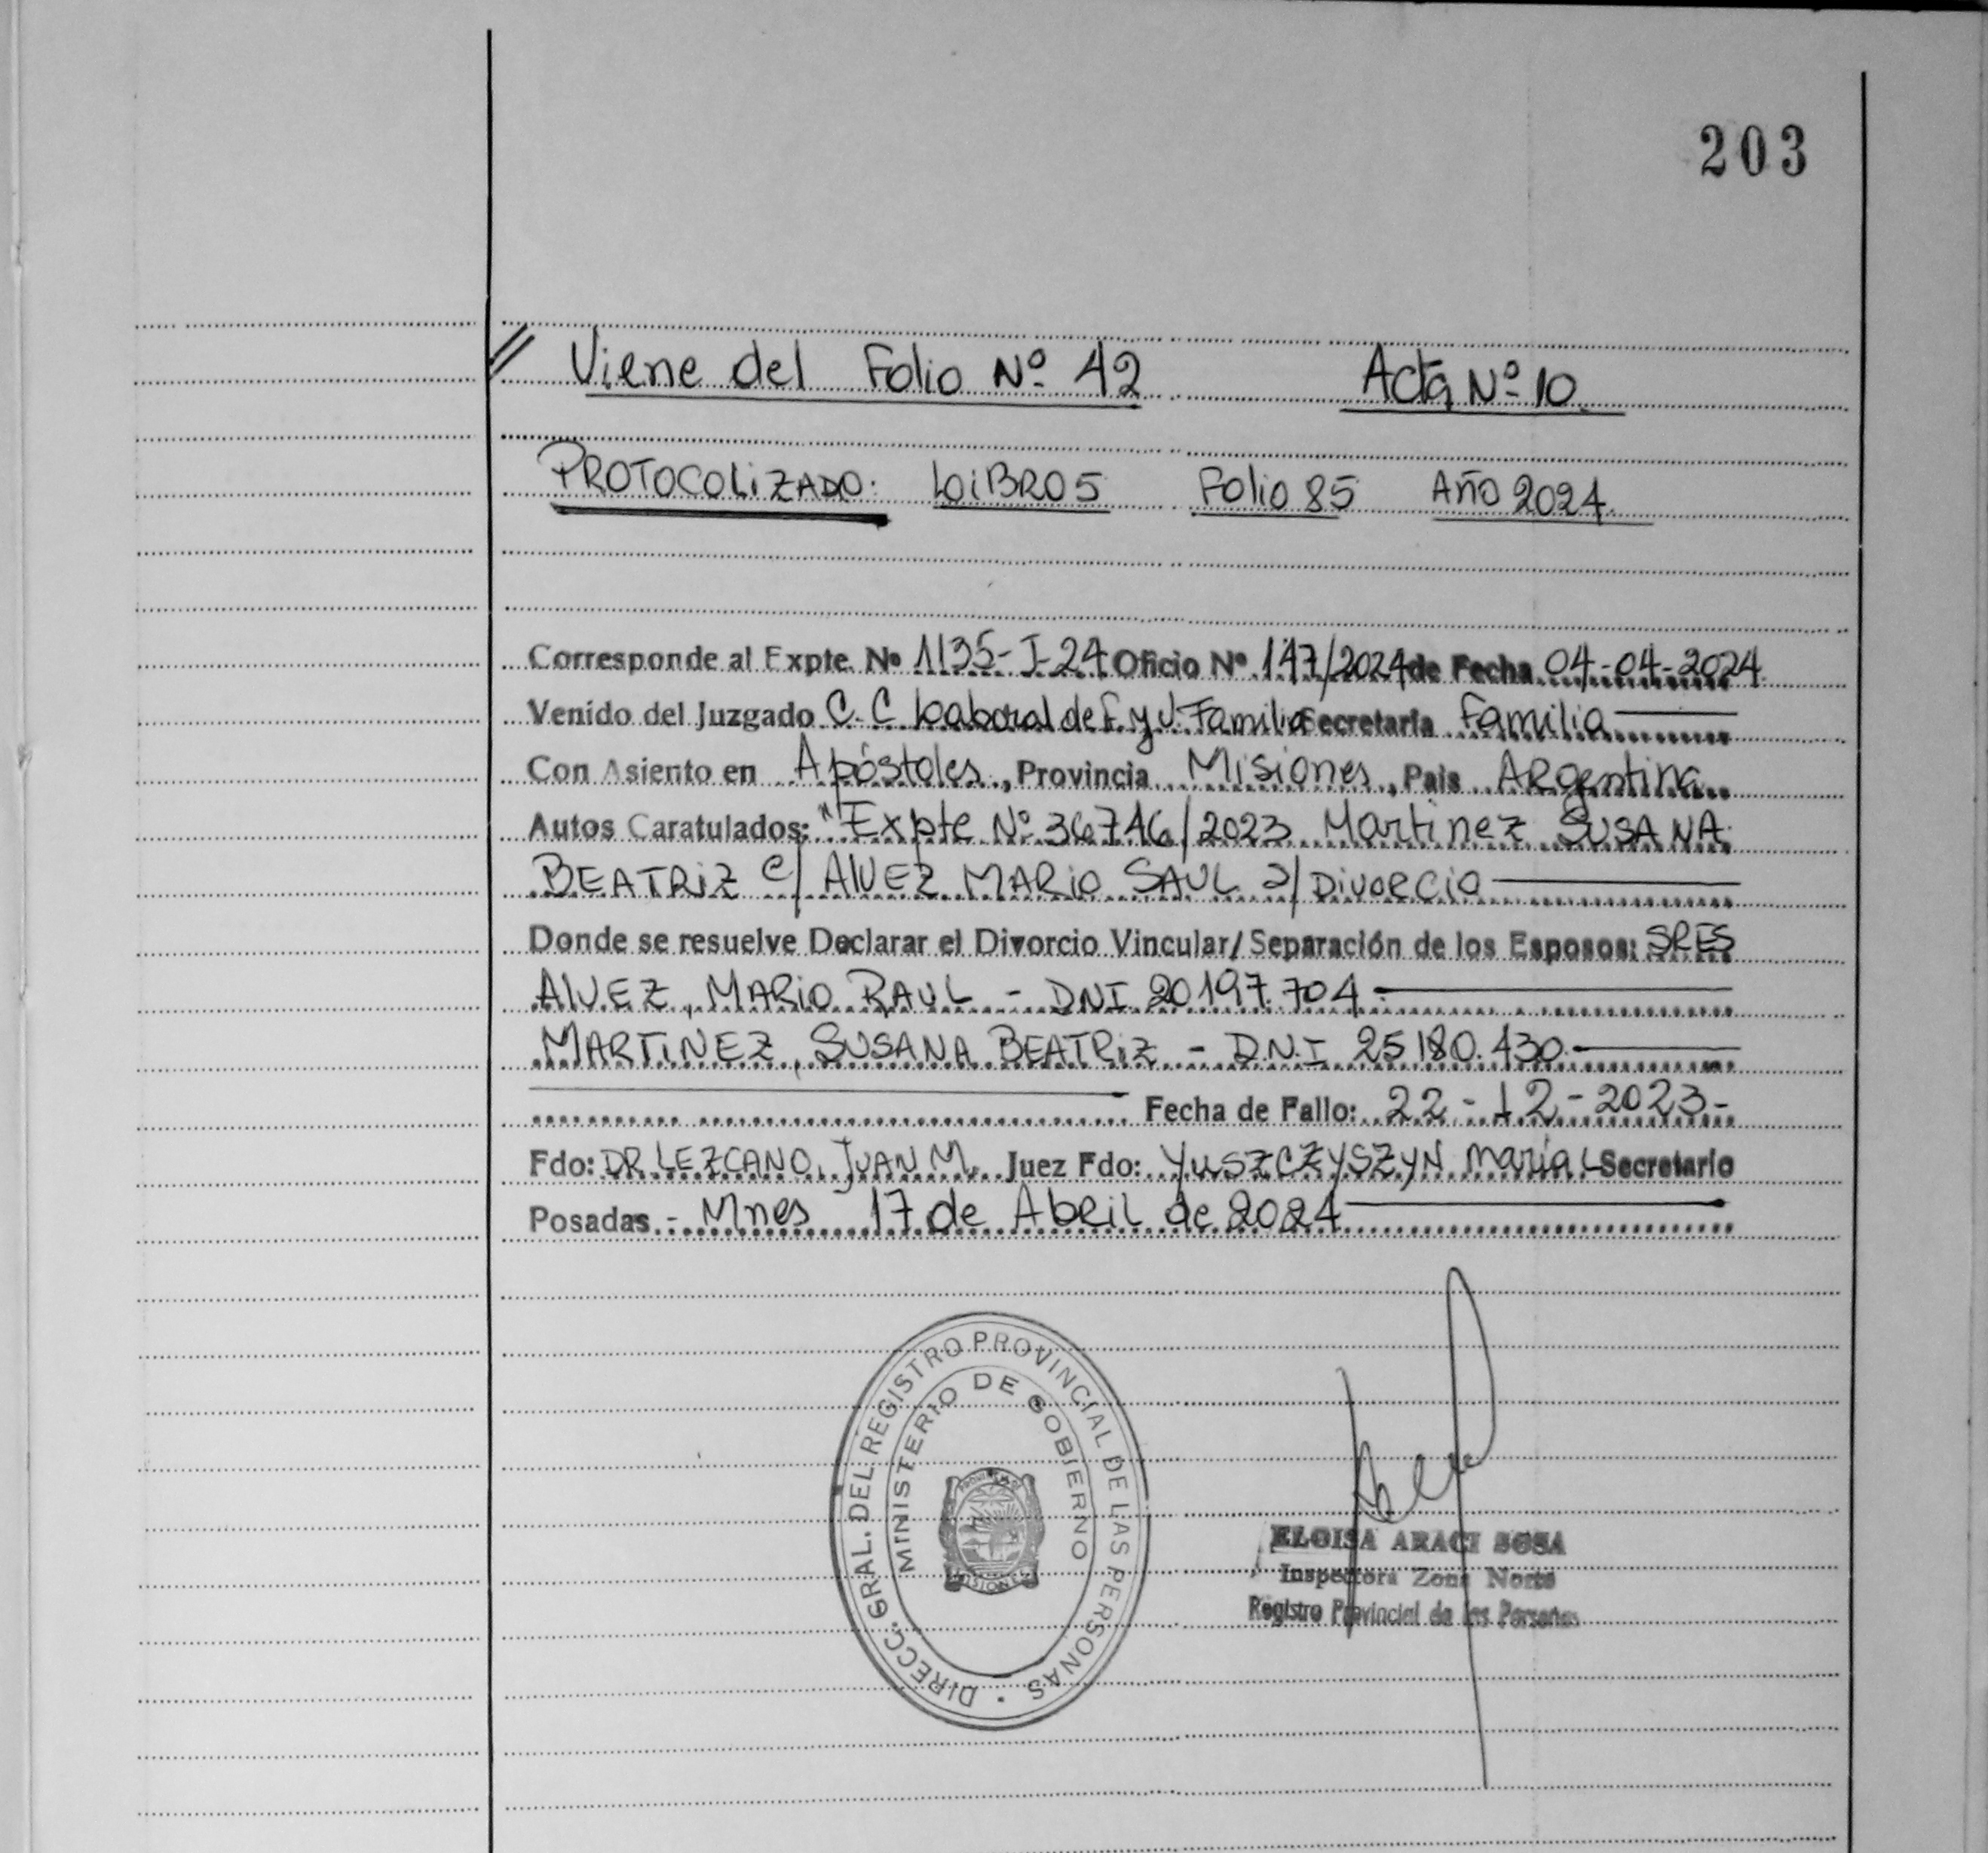 203
// Viene del Folio Nº 42 Acta Nº 10
PROTOCOLIZADO: LIBRO 5 Folio 85 AÑO 2024
Corresponde al Expte. Nº 1135-I-24 Oficio Nº 147/2024 de Fecha 04-04-2024
Venido del Juzgado C. C Laboral de F. y V. Familia Secretaría Familia
Con Asiento en Apóstoles, Provincia Misiones, País ARgentina
Autos Caratulados: "Expte Nº 36746/2023 Martinez SUSANA
BEATRIZ C/ AlVEZ MARIO SAUL S/ DIVORCIO
Donde se resuelve Declarar el Divorcio Vincular/ Separación de los Esposos: SRES
AlVEZ, MARIO RAUL - DNI 20197.704.
MARTINEZ, SUSANA BEATRIZ - D.N.I 25180.430.
Fecha de Fallo: 22-12-2023-
Fdo: DR LEZCANO, JUAN M. Juez Fdo: YUSZCZYSZYN María L Secretario
Posadas - Mnes 17 de Abril de 2024
DIRECC. GRAL. DEL REGISTRO PROVINCIAL DE LAS PERSONAS
MINISTERIO DE GOBIERNO
MISIONES
ELOISA ARACI SOSA
Inspectora Zona Norte
Registro Provincial de las Personas